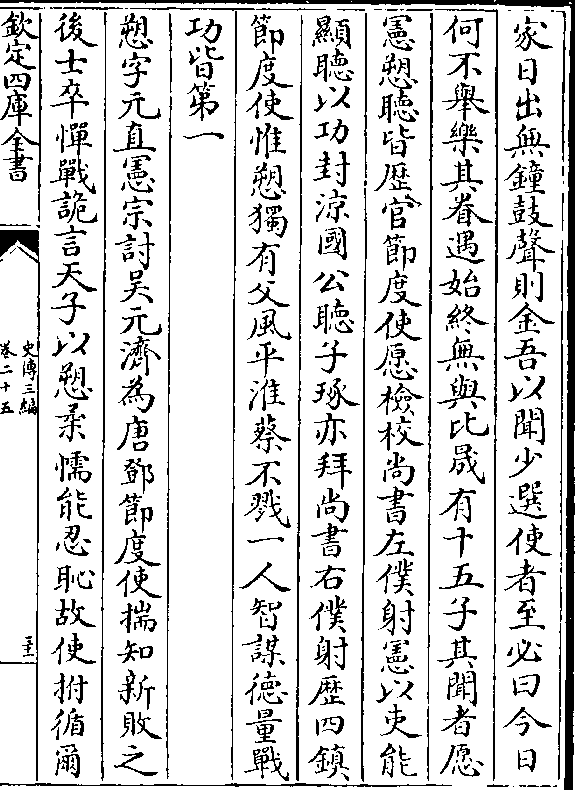 家日出無鐘鼓聲則金吾以聞少選使者至必曰今日
何不舉樂其眷遇始終無與比晟有十五子其聞者愿
憲愬聽皆歴官節度使愿檢校尚書左僕射憲以吏能
顯聽以功封涼國公聽子琢亦拜尚書右僕射歴四鎮
節度使惟愬獨有父風平淮蔡不戮一人智謀德量戰
功皆第一
愬字元直憲宗討吴元濟為唐鄧節度使揣知新敗之
後士卒憚戰詭言天子以愬柔懦能忍恥故使拊循爾
欽定四庫全書
史傳三編
卷二十五